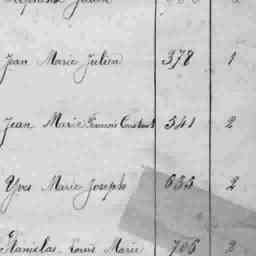 Jean Marie Julien 378 1
Jean Marie François Constant 541 2
Yves Marie Joseph 635 2
Stanislas Louis Marie 706 2